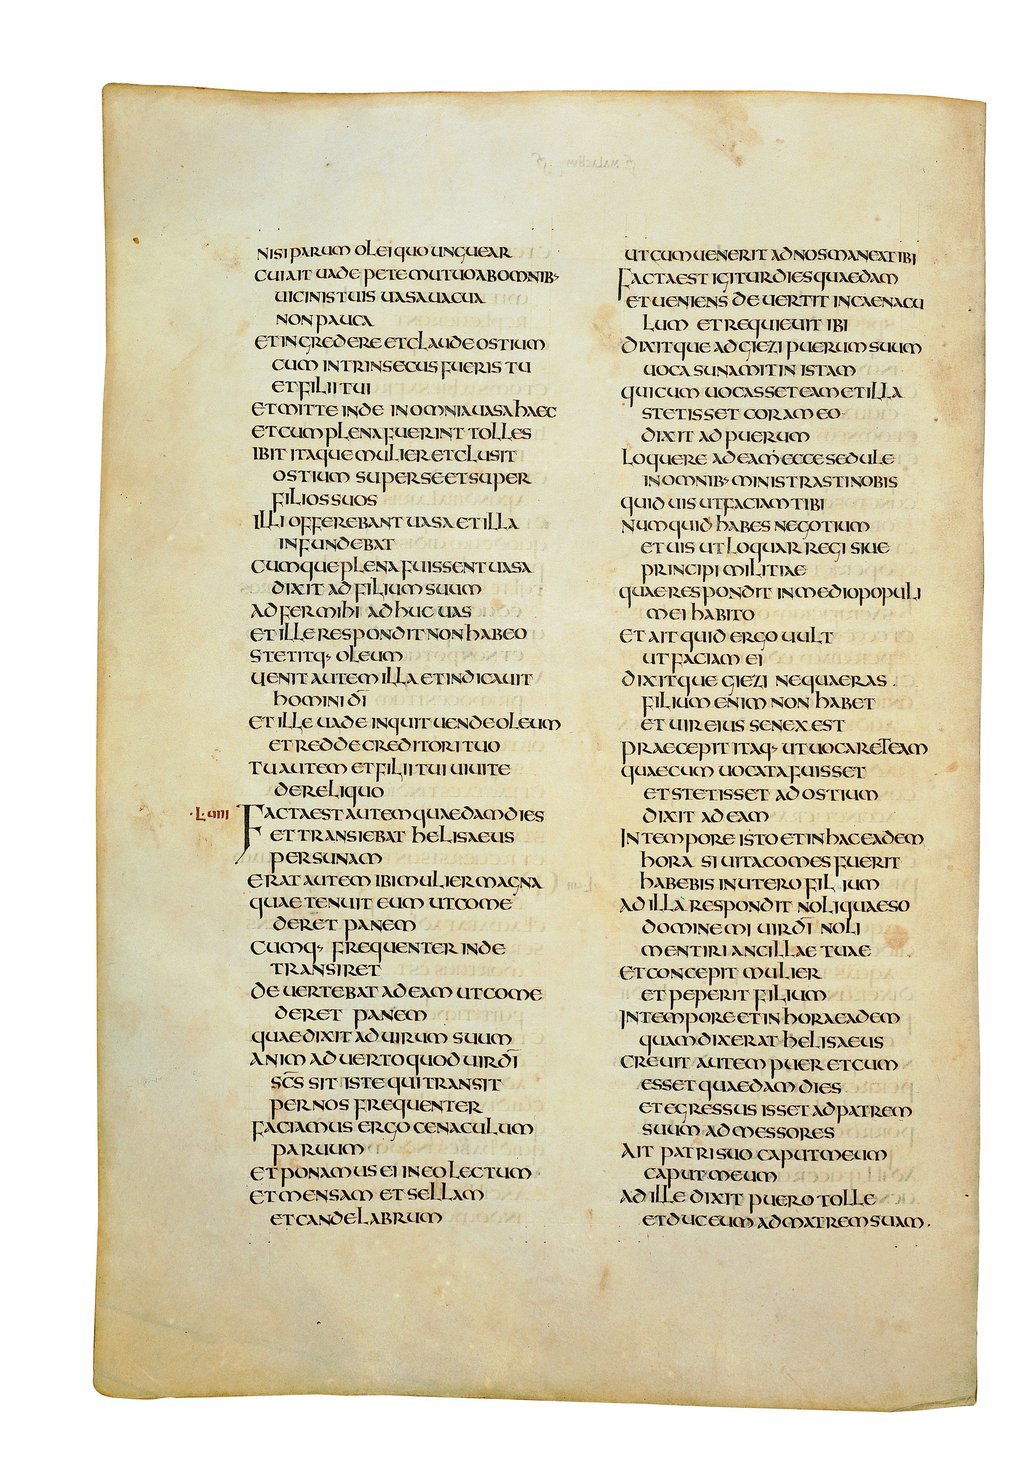 NISI PARUM OLEI QUO UNGUEAR
CUI AIT UADE PETE MUTUO AB OMNIB·
UICINIS TUIS UASA UACUA
NON PAUCA
ET INGREDERE ET CLAUDE OSTIUM
CUM INTRINSECUS FUERIS TU
ET FILII TUI
ET MITTE INDE IN OMNIA UASA HAEC
ET CUM PLENA FUERINT TOLLES
IBIT ITAQUE MULIER ET CLUSIT
OSTIUM SUPER SE ET SUPER
FILIOS SUOS
ILLI OFFEREBANT UASA ET ILLA
INFUNDEBAT
CUMQUE PLENA FUISSENT UASA
DIXIT AD FILIUM SUUM
ADFER MIHI ADHUC UAS
ET ILLE RESPONDIT NON HABEO
STETITQ· OLEUM
UENIT AUTEM ILLA ET INDICAUIT
HOMINI DĪ
ET ILLE UADE INQUIT UENDE OLEUM
ET REDDE CREDITORI TUO
TU AUTEM ET FILII TUI UIUITE
DE RELIQUO
·LIIII FACTA EST AUTEM QUAEDAM DIES
ET TRANSIEBAT HELISAEUS
PER SUNAM
ERAT AUTEM IBI MULIER MAGNA
QUAE TENUIT EUM UT COME
DERET PANEM
CUMQ· FREQUENTER INDE
TRANSIRET
DEUERTEBAT AD EAM UT COME
DERET PANEM
QUAE DIXIT AD UIRUM SUUM
ANIMADUERTO QUOD UIR DĪ
SC̄S SIT ISTE QUI TRANSIT
PER NOS FREQUENTER
FACIAMUS ERGO CENACULUM
PARUUM
ET PONAMUS EI IN EO LECTUM
ET MENSAM ET SELLAM
ET CANDELABRUM
UT CUM UENERIT AD NOS MANEAT IBI
FACTA EST IGITUR DIES QUAEDAM
ET UENIENS DEUERTIT IN CAENACU
LUM ET REQUIEUIT IBI
DIXITQUE AD GIEZI PUERUM SUUM
UOCA SUNAMITIN ISTAM
QUI CUM UOCASSET EAM ET ILLA
STETISSET CORAM EO
DIXIT AD PUERUM
LOQUERE AD EAM ECCE SEDULE
IN OMNIB· MINISTRASTI NOBIS
QUID UIS UT FACIAM TIBI
NUMQUID HABES NEGOTIUM
ET UIS UT LOQUAR REGI SIUE
PRINCIPI MILITIAE
QUAE RESPONDIT IN MEDIO POPULI
MEI HABITO
ET AIT QUID ERGO UULT
UT FACIAM EI
DIXITQUE GIEZI NE QUAERAS.
FILIUM ENIM NON HABET
ET UIR EIUS SENEX EST
PRAECEPIT ITAQ· UT UOCARET EAM
QUAE CUM UOCATA FUISSET
ET STETISSET AD OSTIUM
DIXIT AD EAM
IN TEMPORE ISTO ET IN HAC EADEM
HORA SI UITA COMES FUERIT
HABEBIS IN UTERO FILIUM
AD ILLA RESPONDIT NOLI QUAESO
DOMINE MI UIR DĪ NOLI
MENTIRI ANCILLAE TUAE
ET CONCEPIT MULIER
ET PEPERIT FILIUM
IN TEMPORE ET IN HORA EADEM
QUAM DIXERAT HELISAEUS
CREUIT AUTEM PUER ET CUM
ESSET QUAEDAM DIES
ET EGRESSUS ISSET AD PATREM
SUUM AD MESSORES
AIT PATRI SUO CAPUT MEUM
CAPUT MEUM
AD ILLE DIXIT PUERO TOLLE
ET DUC EUM AD MATREM SUAM.